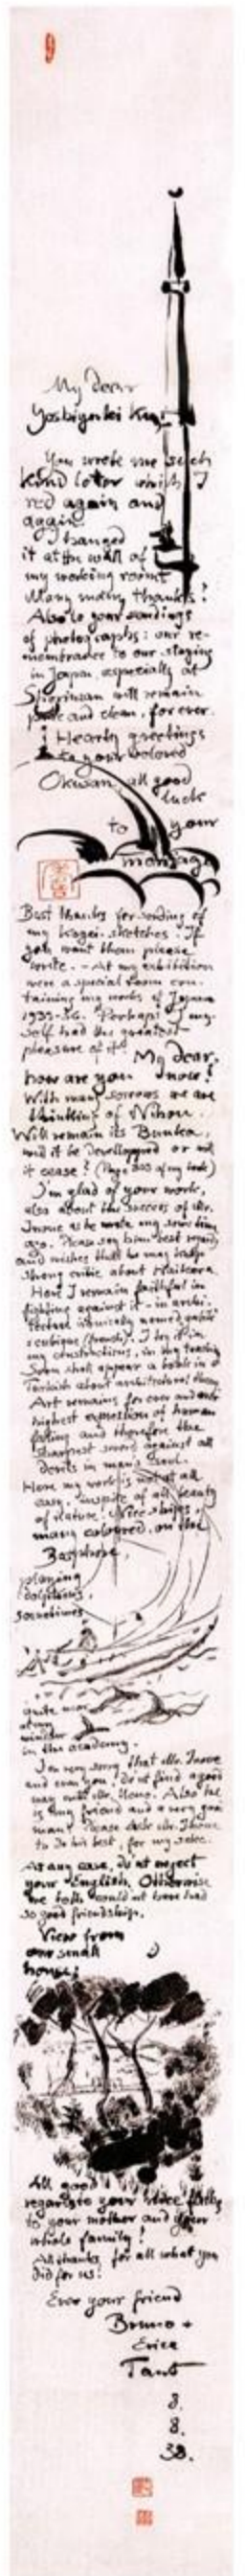 My dear
Yoshiyuki Kun!
You wrote me such
kind letter which I
red again and
again.
I hanged
it at the wall of
my working room!
Many many thanks!
Also to your sendings
of photographs: our re-
membrance to our staying
in Japan especially at
Shorinzan will remain
pure and clean, for ever.
Hearty greetings
to your beloved
Okusan, all good
luck
to your
marriage
Best thanks for sending of
my Kogei-sketches. If
you want them please
write. - At my exhibition
were a special room con-
taining my works of Japan
1933-36. Perhaps I my-
self had the greatest
pleasure of it!
My dear,
how are you now?
With many sorrows we are
thinking of Nihon.
Will remain its Bunka,
will it be developped or will
it cease? (Page 303 of my book)
I'm glad of your work,
also about the success of Mr.
Inoue as he wrote me some time
ago. Please say him best regards
and wishes that he may
strong critic about Haikara.
Here I remain faithful in
fighting against it - in archi-
tecture ironically named
cubique (french). I try it in
my constructions, in my teaching
Soon shall appear a book in
Turkish about architectural
Art remains for ever and ever
highest expression of human
feeling and therefore the
sharpest sword against all
devils in man's soul.
Here my work is not at all
easy, inspite of all beauty
of nature! Nice ships,
many coloured, on the
Bosphore,
playing
dolphins,
sometimes
quite near
at my
window
in the academy.
I'm very sorry that Mr. Inoue
and even you, do not find a good
way with Mr. Ueno. Also he
is my friend and a very good
man! Please ask Mr. Inoue
to do his best, for my sake.
At any case, do not neglect
your English. Otherwise
we both could not have had
so good friendship.
View from
our small
house:
All good
regards to your father
to your mother and your
whole family!
All thanks for all what you
did for us!
Ever your friend
Bruno +
Erica
Taut
8.
8.
38.